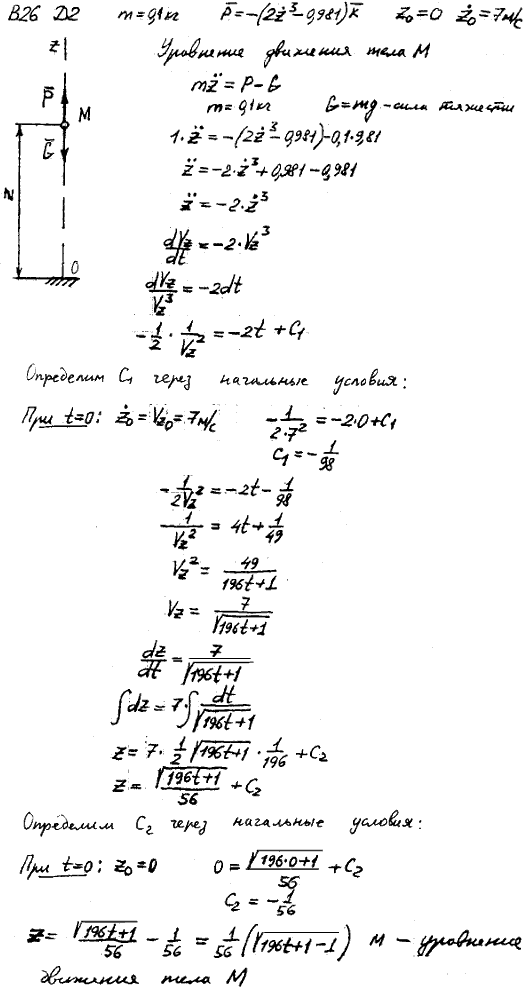 В26 Д2 m=0,1кг P̄=-(2ż³-0,981)k̄ z₀=0 ż₀=7м/с
z
Уравнение движения тела М
P̄
M
mz̈=P-G
m=0,1кг G=mg-сила тяжести
Ḡ
1·z̈=-(2ż³-0,981)-0,1·9,81
z̈=-2·ż³+0,981-0,981
z
z̈=-2·ż³
O
dVz/dt=-2·Vz³
dVz/Vz³=-2dt
-1/2·1/Vz²=-2t+C₁
Определим C₁ через начальные условия:
При t=0: ż₀=Vz₀=7м/с -1/(2·7²)=-2·0+C₁
C₁=-1/98
-1/(2Vz²)=-2t-1/98
1/Vz²=4t+1/49
Vz²=49/(196t+1)
Vz=7/√(196t+1)
dz/dt=7/√(196t+1)
∫dz=7·∫dt/√(196t+1)
z=7·1/2√(196t+1)·1/196+C₂
z=√(196t+1)/56+C₂
Определим C₂ через начальные условия:
При t=0: z₀=0 0=√(196·0+1)/56+C₂
C₂=-1/56
z=√(196t+1)/56-1/56=1/56(√(196t+1-1)) м - уравнение
движения тела М